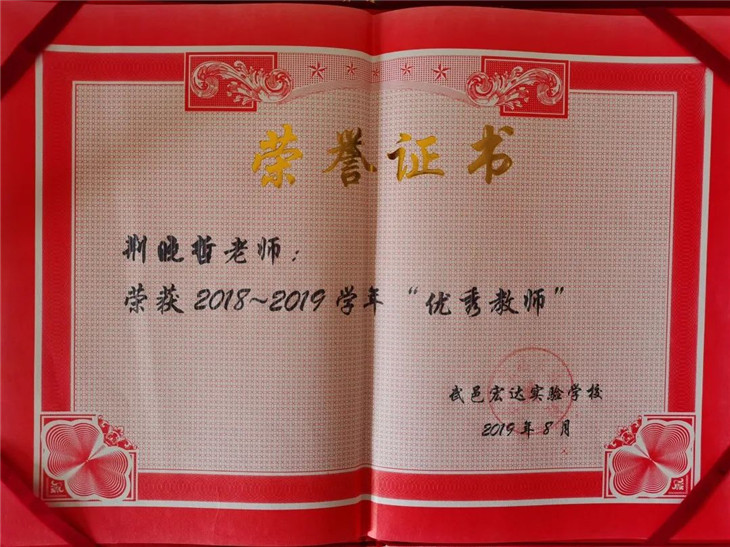 荣誉证书
荆晚哲老师：
荣获2018~2019学年“优秀教师”
武邑宏达实验学校
2019年8月